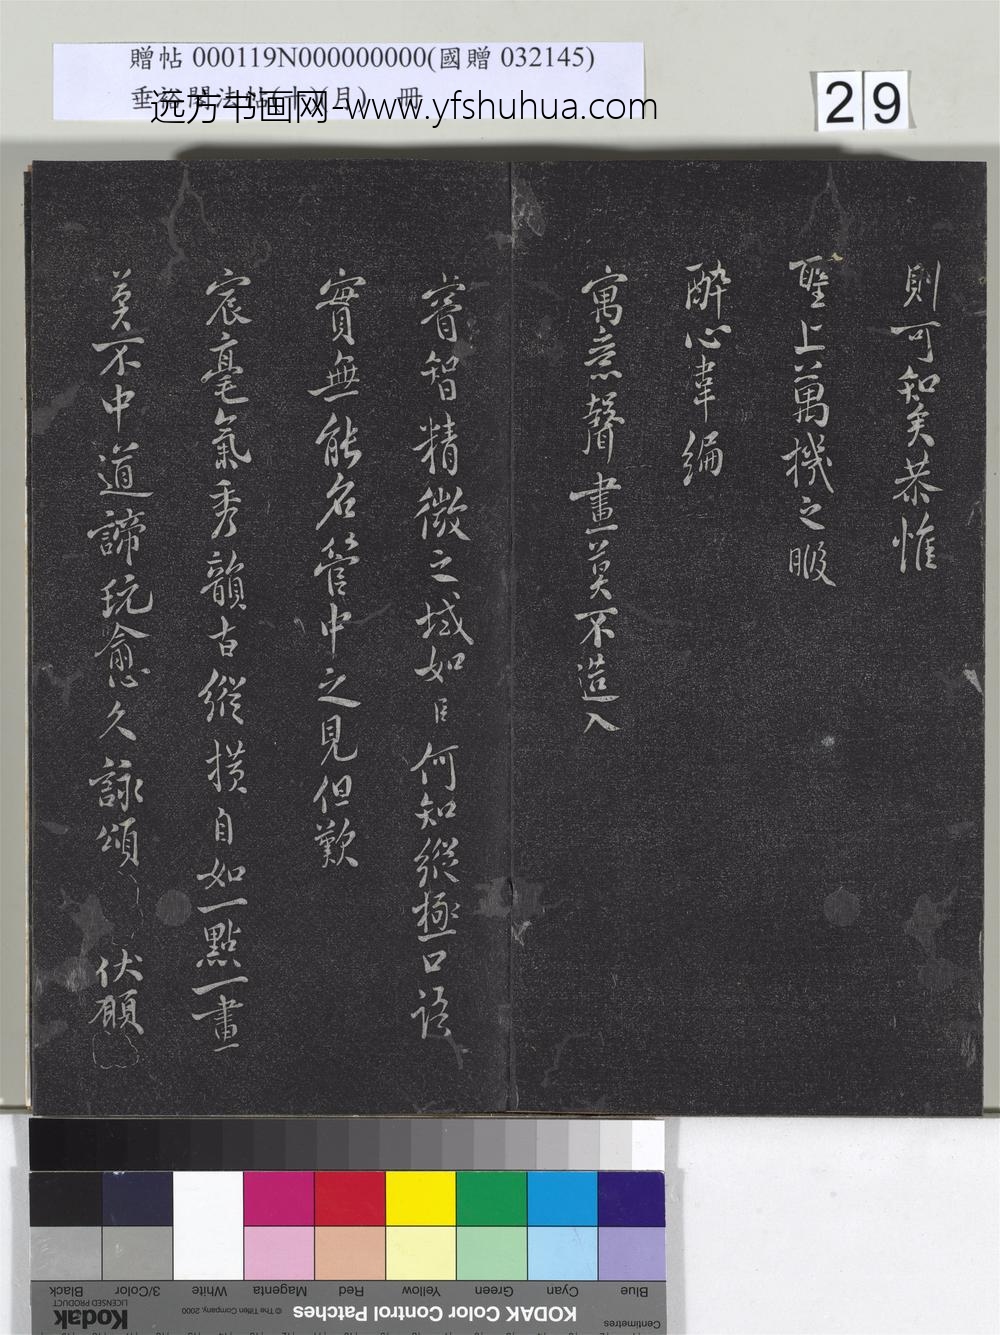 贈帖 000119N000000000(國贈 032145)
远方书画网-www.yfshuhua.com
29
則可知矣恭惟
聖上萬機之暇
酔心韋編
寓意聲畫莫不造入
睿智精微之域如臣何知縱極口語
實無能名管中之見但歎
宸毫氣秀韻古縱横自如一點一畫
莫不中道諦玩愈久詠頌 伏願
Blue
Cyan
Green
Yellow
Red
Magenta
White
3/Color
Black
Centimetres
KODAK Color Control Patches
© The Tiffen Company, 2000
Kodak
LICENSED PRODUCT